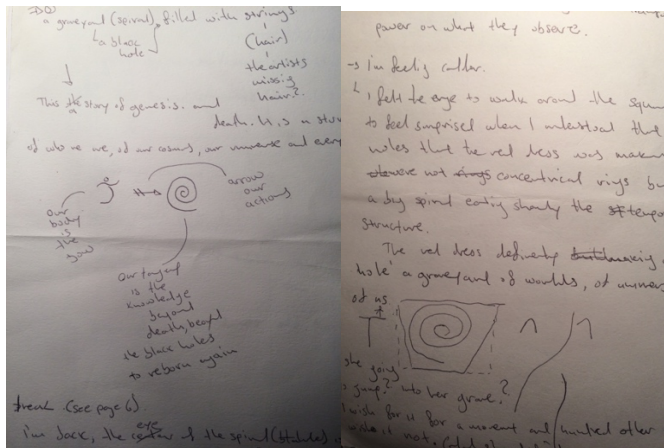 a graveyard (spiral) filled with strings.
a black
hole
(hair)
the artists
missig
hair?
This story of genesis. and
death. It is a
of who we are, of our cosmos, our universe and
Our
body
is the
bow
arrow
our
actions
Our target
is the
knowledge
beyond
death, beyond
the black holes
to reborn again
break (see page 6)
I'm back, the center eye of the spiral
power on what they observe.
→ I'm feelig calmer.
I felt the urge to walk around the
to feel surprised when I understood that
holes that the red dress was
not concentrical rings
a big spiral eating slowly the
structure.
The red dress definetely
hole a graveyard of worlds, of
of us.
she going
jump? into her grave?
wish for it for a moment and hundred other